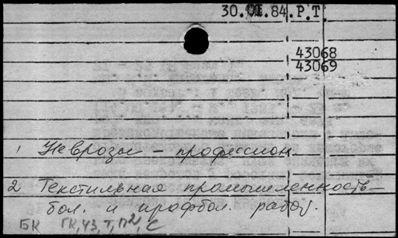 30.VI.84.Р.Т.
43068
43069
1 Неврозы – профессион.
2 Текстильная промышленность –
бол. и профбол. рабоч.
БК ГК, УЗ, Т, П2, С